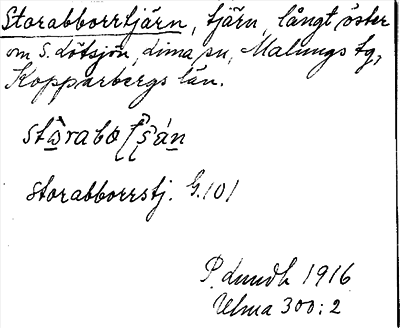 Storabborrtjärn, tjärn, långt öster
om S. Lötsjön, Lima sn, Malungs tg,
Kopparbergs län.
storabborrstj. G. 101
P. Lundh 1916
Ulma 300:2